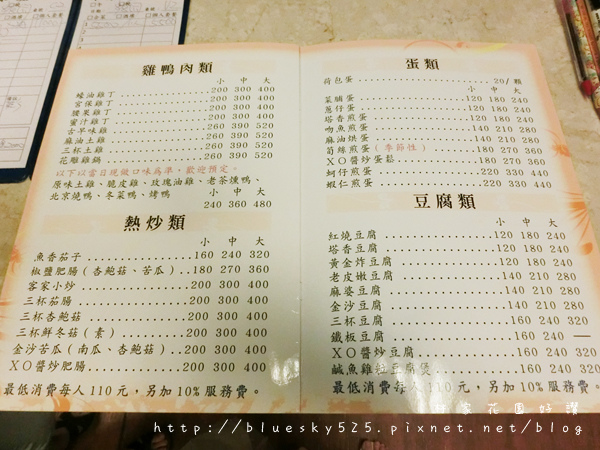 雞鴨肉類
小 中 大
蠔油雞丁 200 300 400
宮保雞丁 200 300 400
腰果雞丁 200 300 400
蜜汁雞丁 200 300 400
古早味雞 260 390 520
麻油土雞 260 390 520
三杯土雞 260 390 520
花雕雞鍋 260 390 520
以下以當日現做口味為準，歡迎預定。
原味土雞、脆皮雞、玫瑰油雞、老茶燻鴨、
北京燒鴨、冬菜鴨、烤鴨 小 中 大
240 360 480
熱炒類
小 中 大
魚香茄子 160 240 320
椒鹽肥腸（杏鮑菇、苦瓜） 180 270 360
客家小炒 200 300 400
三杯茄腸 200 300 400
三杯杏鮑菇 200 300 400
三杯鮮冬菇（素） 200 300 400
金沙苦瓜（南瓜、杏鮑菇） 200 300 400
XO醬炒肥腸 200 300 400
最低消費每人110元，另加10%服務費。
蛋類
荷包蛋 20/顆
小 中 大
菜脯蛋 120 180 240
蔥仔蛋 120 180 240
塔香煎蛋 120 180 240
吻魚煎蛋 140 210 280
麻油烘蛋 140 210 280
筍絲煎蛋（季節性） 180 270 360
XO醬炒蛋鬆 180 270 360
蚵仔煎蛋 220 330 440
蝦仁煎蛋 220 330 440
豆腐類
小 中 大
紅燒豆腐 120 180 240
塔香豆腐 120 180 240
黃金炸豆腐 120 180 240
老皮嫩豆腐 140 210 280
麻婆豆腐 140 210 280
金沙豆腐 140 210 280
三杯豆腐 160 240 320
鐵板豆腐 160 240 —
XO醬炒豆腐 160 240 320
鹹魚雞粒豆腐煲 160 240 320
最低消費每人110元，另加10%服務費。
花園好讚
http://bluesky525.pixnet.net/blog